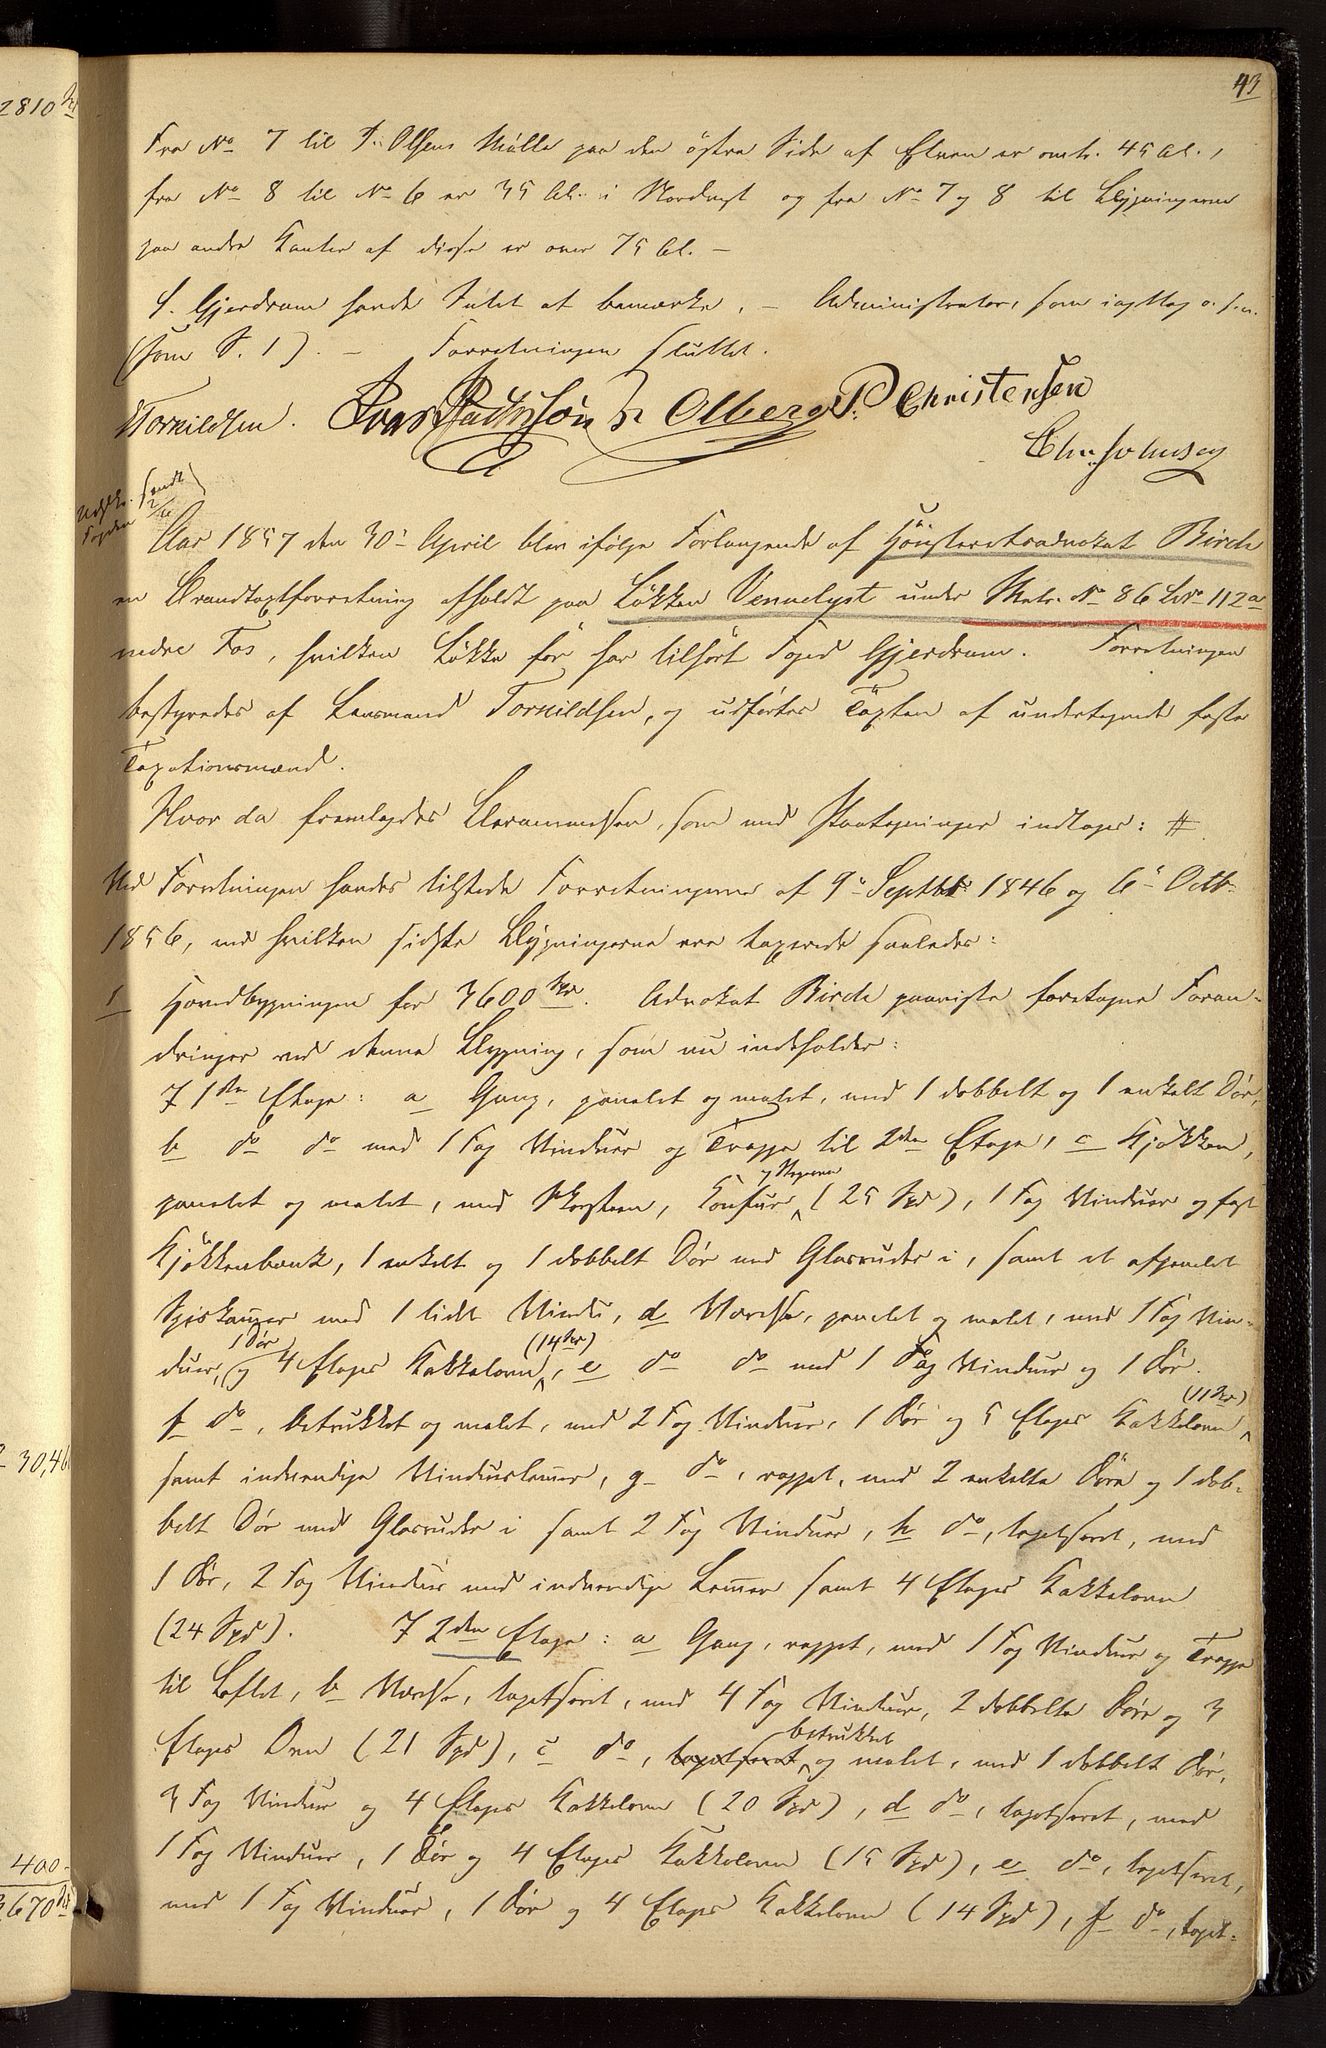 43
2810
Fra No 7 til T. Olsens Mølle paa den østre Side af Elven er omtr. 45 Al.,
fra No 8 til No 6 er 35 Al. i Nordvest og fra No 7 og 8 til Bygningerne
paa andre Kanter af disse er over 75 Al. –
S. Gjerdrum havde Intet at bemærke. – Administrator, som iagttog o. s. v.
(som S. 1). – Forretningen sluttet.
Torkildsen. Olberg P. Christensen
Chr. Johnsen
Udskr. sendt
Fogden 2/
Aar 1857 den 30' April blev ifølge Forlangende af Høiesteretsadvokat Birch
en Brandtaxtforretning afholdt paa Løkken Vennelyst under Matr. No 86 LNo 112a
nedre Fos, hvilken Løkke før har tilhørt Foged Gjerdrum. Forretningen
bestyredes af Lensmand Torkildsen, og udførtes Taxten af undertegnede faste
Taxationsmænd.
Hvor da fremlagdes Berammelsen, som med Paategninger indtages: #
Ved Forretningen havdes tilstede Forretningerne af 9' Septbr 1846 og 6' Octb.
1856, ved hvilken sidste Bygningerne ere taxerede saaledes:
1 Hovedbygningen for 3600 Spd. Advokat Birch paaviste foretagne Foran-
dringer ved denne Bygning, som nu indeholder:
I 1ste Etage: a Gang, panelet og malet, med 1 dobbelt og 1 enkelt Dør,
b do do med 1 Fag Vinduer og Trappe til 2den Etage, c Kjøkken,
panelet og malet, med Skorsteen, Komfur (25 Spd), 1 Fag Vinduer og fast
Kjøkkenbænk, 1 enkelt og 1 dobbelt Dør med Glasruder i, samt et afpanelet
Spiskammer med 1 lidet Vindu, d Værelse, panelet og malet, med 1 Fag Vin-
duer, 1 Dør og 4 Etages Kakkelovn (14 Spd), e do do med 1 Fag Vinduer og 1 Dør.
f do, betrukket og malet, med 2 Fag Vinduer, 1 Dør og 5 Etages Kakkelovn (11 Spd)
30,46
samt indvendige Vinduslemmer, g do, rappet, med 2 enkelte Døre og 1 dob-
belt Dør med Glasruder i samt 2 Fag Vinduer, h do, tapetseret, med
1 Dør, 2 Fag Vinduer med indvendige Lemmer samt 4 Etages Kakkelovn
(24 Spd). I 2den Etage: a Gang, rappet, med 1 Fag Vinduer og Trappe
til Loftet, b Værelse, tapetseret, med 4 Fag Vinduer, 2 dobbelte Døre og 3
Etages Ovn (21 Spd), c do, tapetseret betrukket og malet, med 1 dobbelt Dør,
3 Fag Vinduer og 4 Etages Kakkelovn (20 Spd), d do, tapetseret, med
1 Fag Vinduer, 1 Dør og 4 Etages Kakkelovn (15 Spd), e do, tapetseret,
400
med 1 Fag Vinduer, 1 Dør og 4 Etages Kakkelovn (14 Spd), f do, tapet-
670